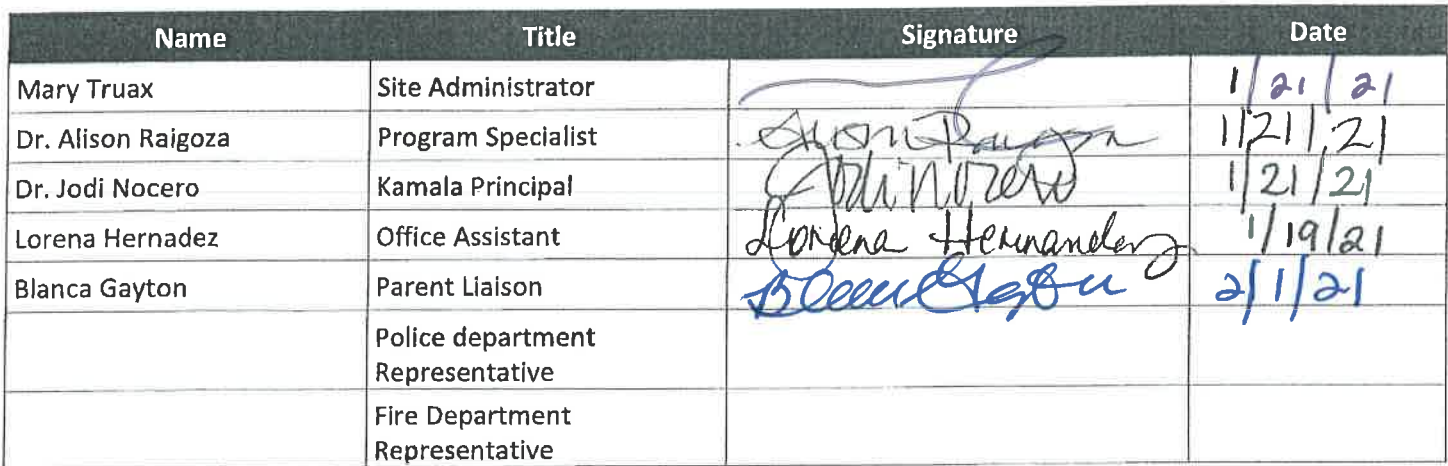 Name Title Signature Date
Mary Truax Site Administrator 1/21/21
Dr. Alison Raigoza Program Specialist Alison Raigoza 1/21/21
Dr. Jodi Nocero Kamala Principal Jodi Nocero 1/21/21
Lorena Hernadez Office Assistant Lorena Hernandez 1/19/21
Blanca Gayton Parent Liaison Blanca Gayton 2/1/21
Police department
Representative
Fire Department
Representative